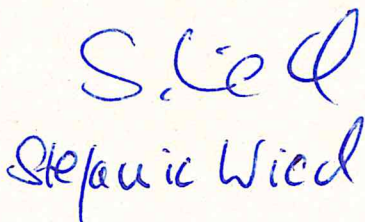 S. Wied
Stefanie Wied